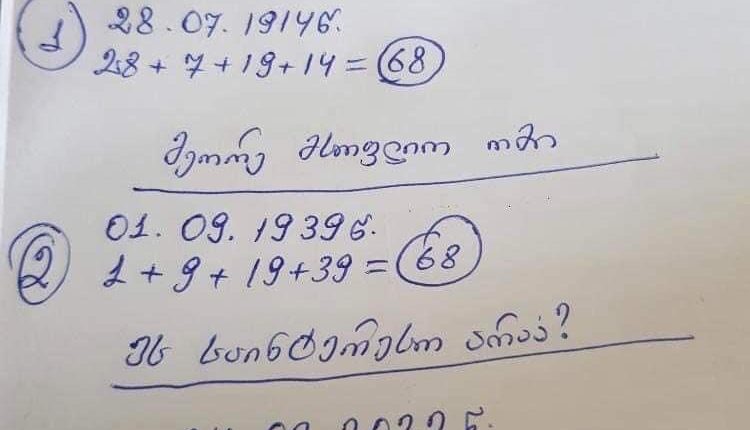 1 28.07.1914წ.
28+7+19+14=68
მეორე მსოფლიო ომი
2 01.09.1939წ.
1+9+19+39=68
ეს საინტერესო არაა?